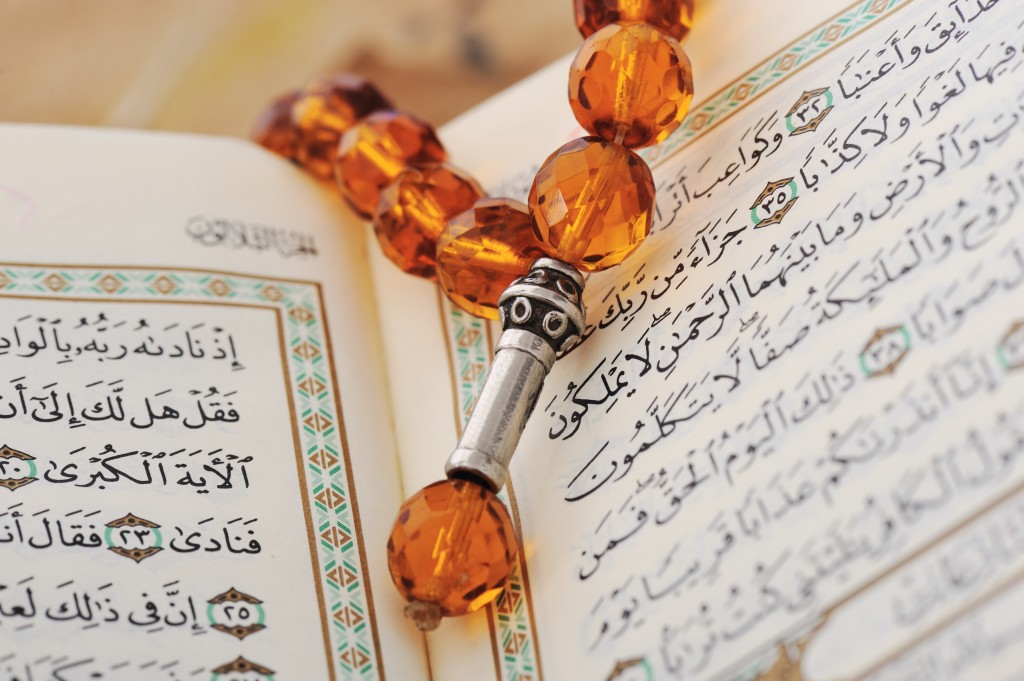 حَدَآئِقَ وَأَعْنَٰبًا ٣٢ وَكَوَاعِبَ
فِيهَا لَغْوًا وَلَا كِذَّٰبًا ٣٥ جَزَآءً مِّن رَّبِّكَ
وَٱلْأَرْضِ وَمَا بَيْنَهُمَا ٱلرَّحْمَٰنِ لَا يَمْلِكُونَ
ٱلرُّوحُ وَٱلْمَلَٰٓئِكَةُ صَفًّا لَّا يَتَكَلَّمُونَ
صَوَابًا ٣٨ ذَٰلِكَ ٱلْيَوْمُ ٱلْحَقُّ فَمَن
إِنَّآ أَنذَرْنَٰكُمْ عَذَابًا قَرِيبًا يَوْمَ
ٱلْكَافِرُ يَٰلَيْتَنِى كُنتُ تُرَٰبًا
الجزء الثلاثون
إِذْ نَادَىٰهُ رَبُّهُۥ بِٱلْوَادِ
فَقُلْ هَل لَّكَ إِلَىٰٓ أَن
ٱلْءَايَةَ ٱلْكُبْرَىٰ ٢٠
فَنَادَىٰ ٢٣ فَقَالَ أَنَا۠
٢٥ إِنَّ فِى ذَٰلِكَ لَعِبْ